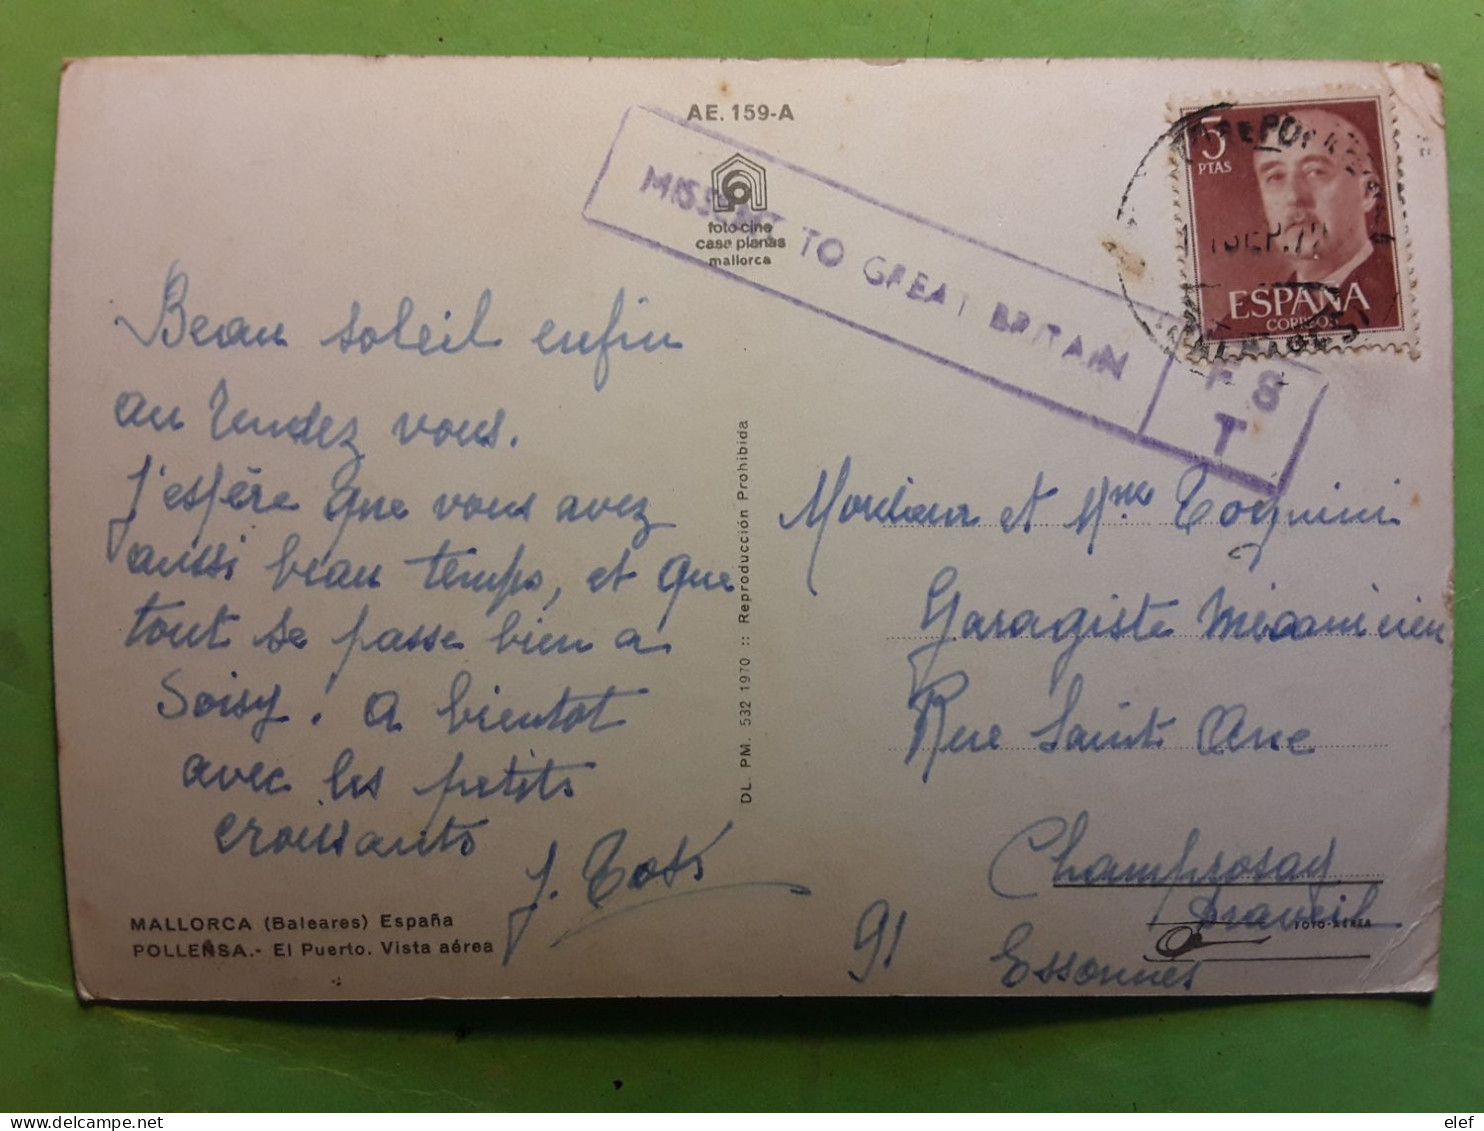 AE. 159-A
foto-cine
casa planas
mallorca
MISSENT TO GREAT BRITAIN
FS
T
5
PTAS
ESPAÑA
CORREOS
Beau soleil enfin
au rendez vous.
J'espère que vous avez
aussi beau temps, et que
tout se passe bien a
Soisy. A bientot
avec les petits
croissants
J. Tosi
MALLORCA (Baleares) España
POLLENSA.- El Puerto. Vista aérea
DL. PM. 532 1970 :: Reproducción Prohibida
Monsieur et Mme Tognini
Garagiste Mécanicien
Rue Sainte Anne
Champrosay
Draveil
91 Essonnes
FOTO-AEREA
elef